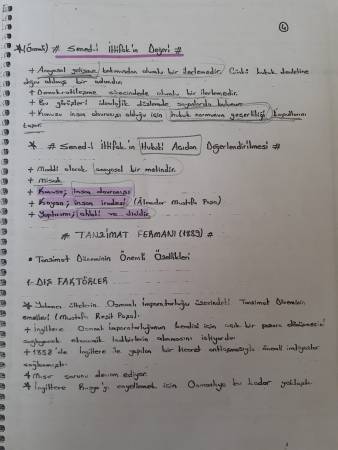 4
*(Önemli) # Sened-i İttifak'ın Değeri #
+ Anayasal gelişme bakımından olumlu bir ilerlemedir. Çünkü hukuk devletine
doğru atılmış bir adımdır.
+ Demokratikleşme sürecindede olumlu bir ilerlemedir.
+ Bu görüşleri ideolojik düzlemde
+ Konusu insan davranışı olduğu için hukuk normunun geçerliliği koşullarını
taşır.
* # Sened-i İttifak'ın Hukuki Açıdan Değerlendirilmesi #
+ Maddi olarak anayasal bir metindir.
+ Misak
+ Konusu; insan davranışı
+ Kaynağı; insan iradesi (Alemdar Mustafa Paşa)
+ Yaptırımı; ahlaki ve dinidir.
# TANZİMAT FERMANI (1839) #
• Tanzimat Döneminin Önemli Özellikleri
1-DIŞ FAKTÖRLER
* Yabancı ülkelerin Osmanlı imparatorluğu üzerindeki Tanzimat Dönemi
emelleri (Mustafa Reşit Paşa).
+ İngiltere Osmanlı imparatorluğunun kendisi için açık bir pazara dönüşmesini
sağlayacak ekonomik tedbirlerin alınmasını istiyordu.
+ 1838'de İngiltere ile yapılan bir ticaret antlaşmasıyla önemli imtiyazlar
sağlanmıştı.
+ Mısır sorunu devam ediyor.
* İngiltere Rusya'yı engellemek için Osmanlıya bu kadar yaklaştı.